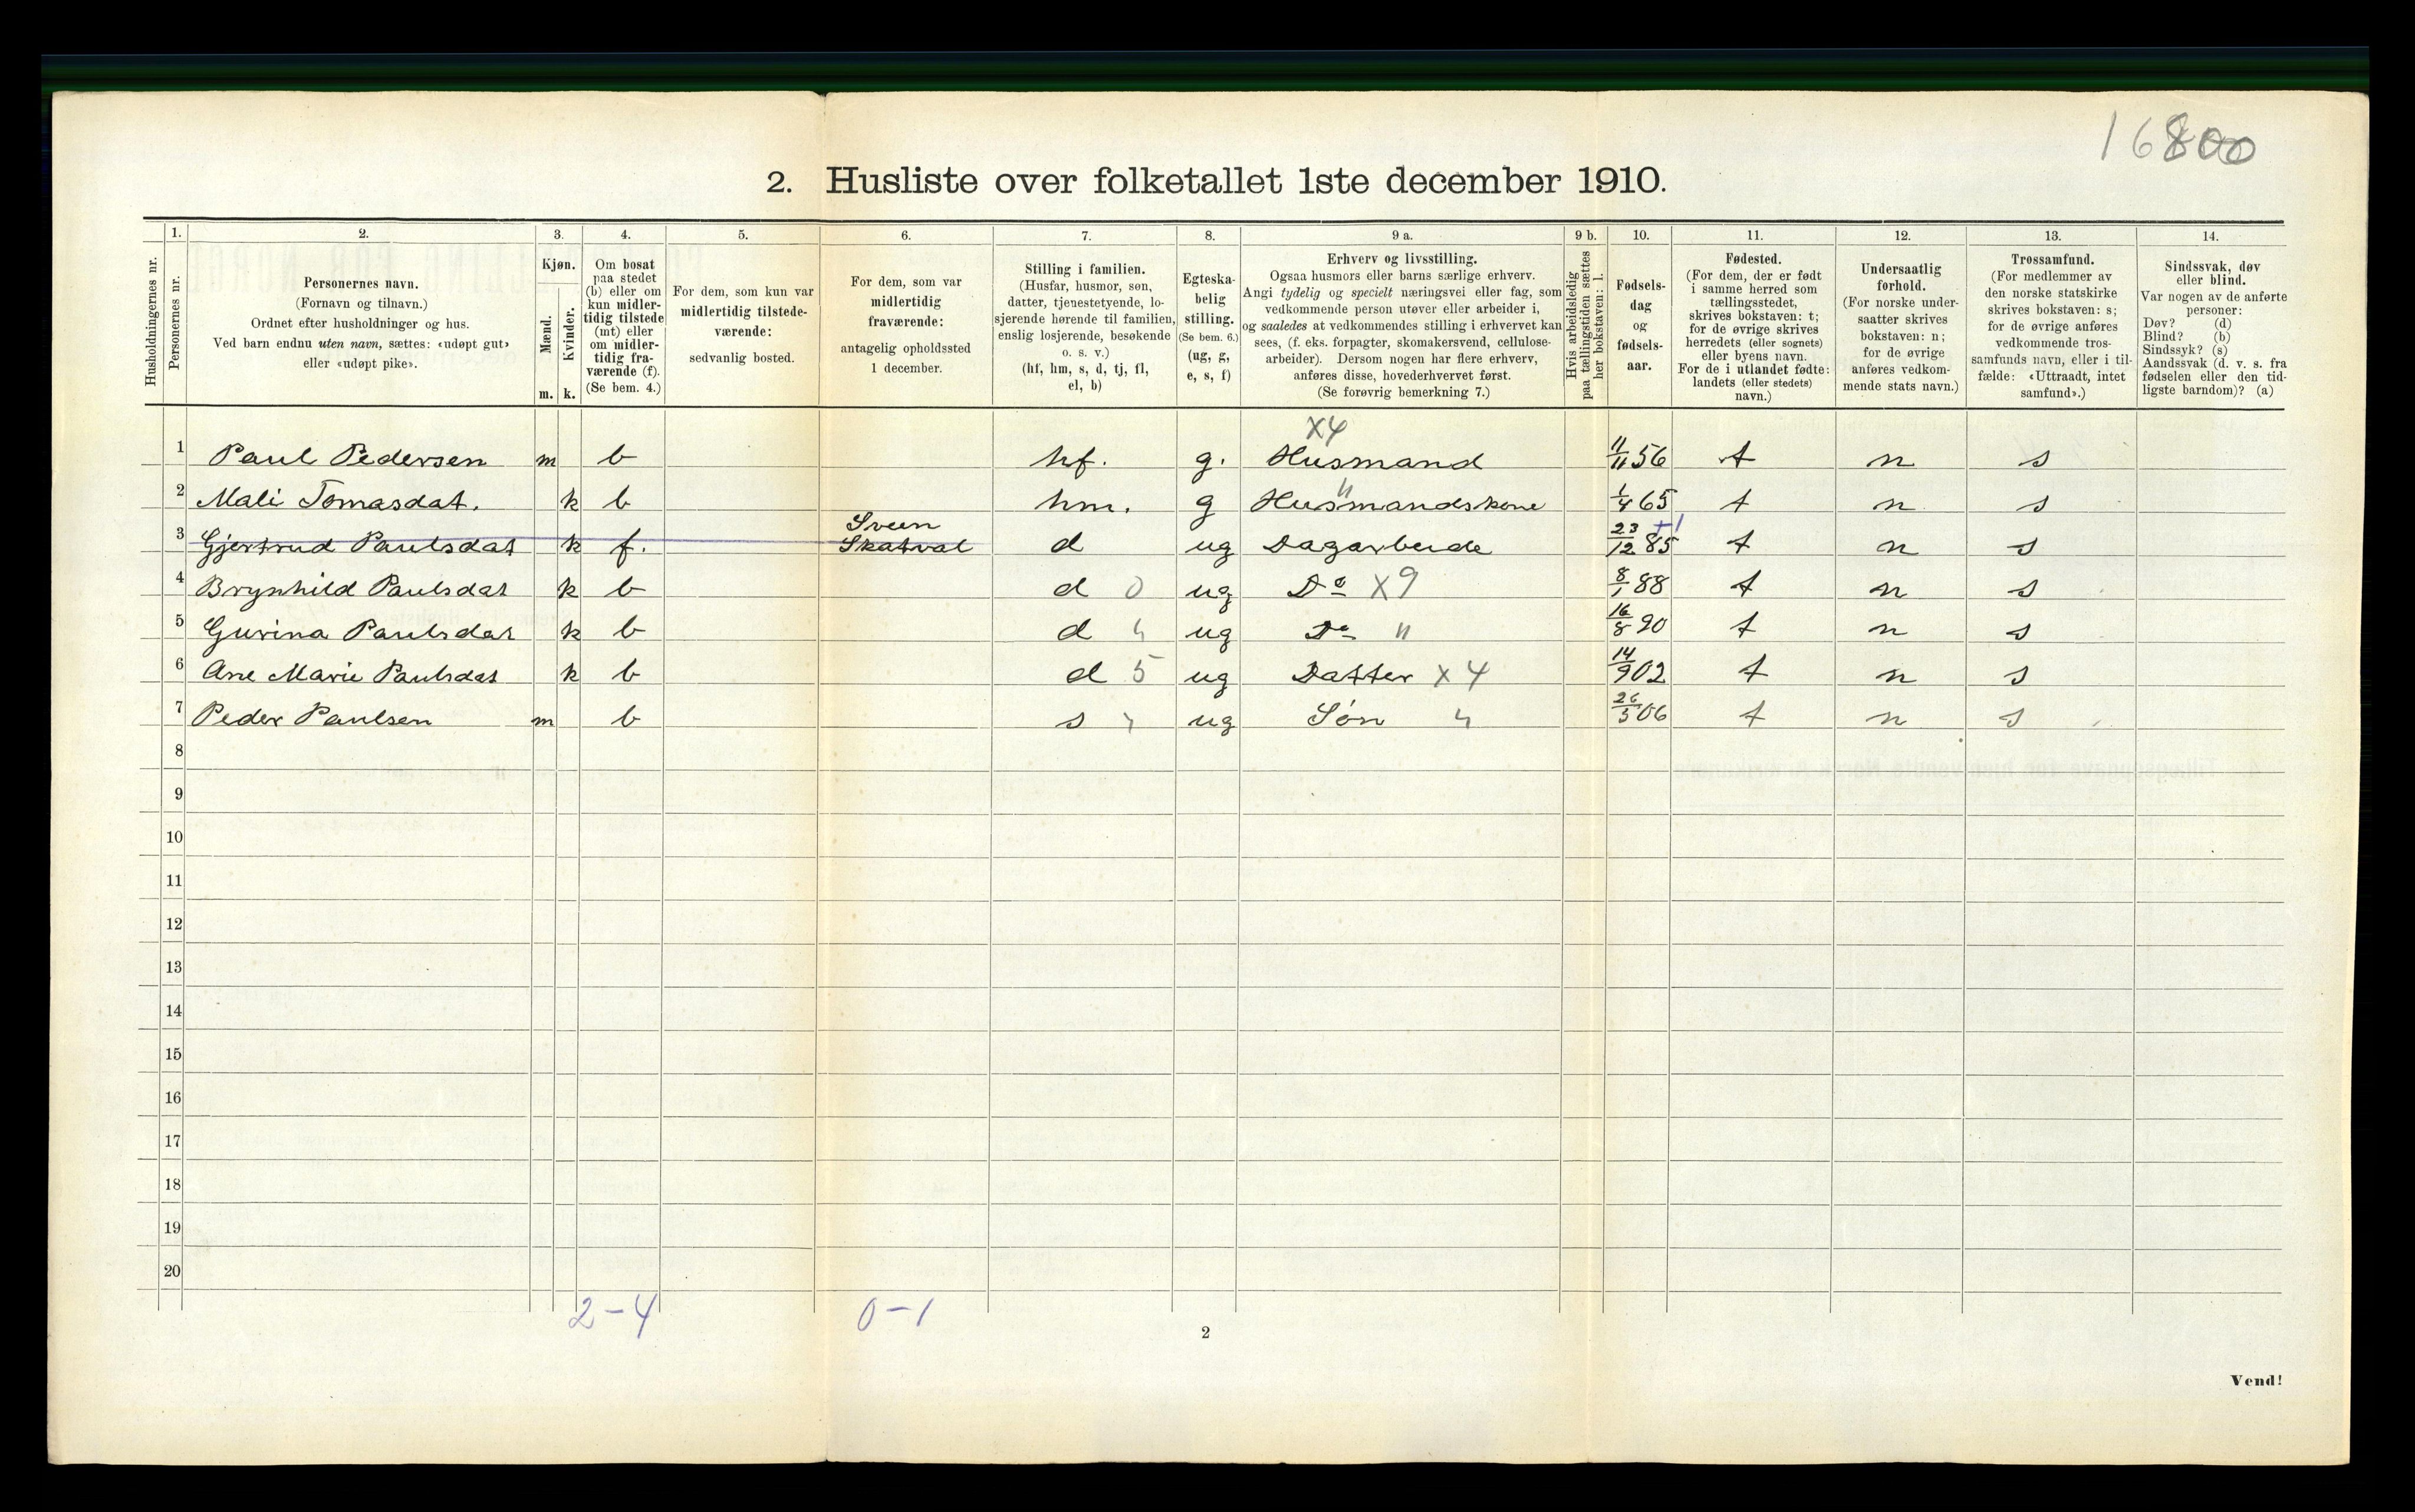 16800
2. Husliste over folketallet 1ste december 1910.
1. 2. 3. 4. 5. 6. 7. 8. 9 a. 9 b. 10. 11. 12. 13. 14.
Husholdningernes nr.
Personernes nr.
Personernes navn.
(Fornavn og tilnavn.)
Ordnet efter husholdninger og hus.
Ved barn endnu uten navn, sættes: «udøpt gut»
eller «udøpt pike».
Kjøn.
Mænd.
Kvinder.
m. k.
Om bosat
paa stedet
(b) eller om
kun midler-
tidig tilstede
(mt) eller
om midler-
tidig fra-
værende (f).
(Se bem. 4.)
For dem, som kun var
midlertidig tilstede-
værende:
sedvanlig bosted.
For dem, som var
midlertidig
fraværende:
antagelig opholdssted
1 december.
Stilling i familien.
(Husfar, husmor, søn,
datter, tjenestetyende, lo-
sjerende hørende til familien,
enslig losjerende, besøkende
o. s. v.)
(hf, hm, s, d, tj, fl,
el, b)
Egteska-
belig
stilling.
(Se bem. 6.)
(ug, g,
e, s, f)
Erhverv og livsstilling.
Ogsaa husmors eller barns særlige erhverv.
Angi tydelig og specielt næringsvei eller fag, som
vedkommende person utøver eller arbeider i,
og saaledes at vedkommendes stilling i erhvervet kan
sees, (f. eks. forpagter, skomakersvend, cellulose-
arbeider). Dersom nogen har flere erhverv,
anføres disse, hovederhvervet først.
(Se forøvrig bemerkning 7.)
Hvis arbeidsledig
paa tællingstiden sættes
her bokstaven: l.
Fødsels-
dag
og
fødsels-
aar.
Fødested.
(For dem, der er født
i samme herred som
tællingsstedet,
skrives bokstaven: t;
for de øvrige skrives
herredets (eller sognets)
eller byens navn.
For de i utlandet fødte:
landets (eller stedets)
navn.)
Undersaatlig
forhold.
(For norske under-
saatter skrives
bokstaven: n;
for de øvrige
anføres vedkom-
mende stats navn.)
Trossamfund.
(For medlemmer av
den norske statskirke
skrives bokstaven: s;
for de øvrige anføres
vedkommende tros-
samfunds navn, eller i til-
fælde: «Uttraadt, intet
samfund».)
Sindssvak, døv
eller blind.
Var nogen av de anførte
personer:
Døv? (d)
Blind? (b)
Sindssyk? (s)
Aandssvak (d. v. s. fra
fødselen eller den tid-
ligste barndom)? (a)
X4
1 Paul Pedersen m b hf. g. Husmand 11/11 56 t n s
2 Mali Tomasdat. k b hm. g Husmandskone 1/4 65 t n s
Sveen +1
3 Gjertrud Paulsdat k f. Skatval d ug Dagarbeide 23/12 85 t n s
4 Brynhild Paulsdat k b d 0 ug Do X9 8/1 88 t n s
5 Gurina Paulsdat k b d ug Do " 16/8 90 t n s
6 Ane Marie Paulsdat k b d 5 ug Datter X4 14/9 02 t n s
7 Peder Paulsen m b s ug Søn 26/5 06 t n s
8
9
10
11
12
13
14
15
16
17
18
19
20
2-4 0-1
2
Vend!